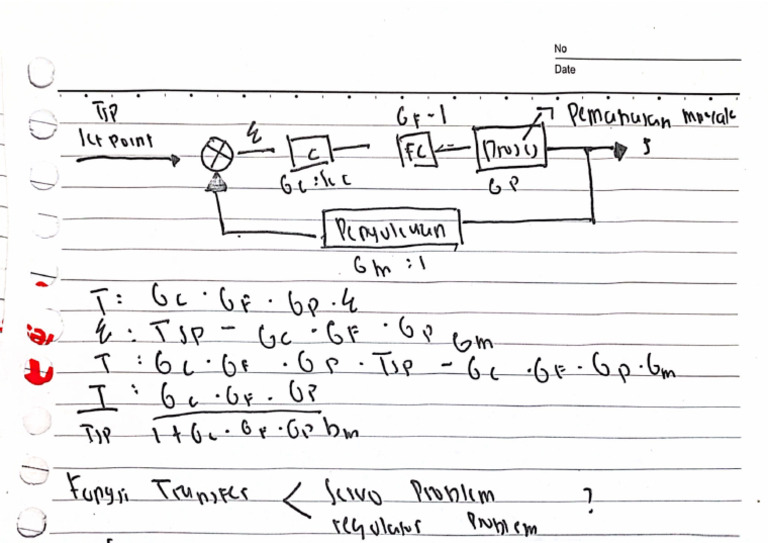 No
Date
TSP
GF - 1
Pemanasan
Set point
ε
C
FC
Proses
Gc : Kc
GP
Pengukuran
Gm : 1
T : Gc · GF · GP · ε
ε : TSP - Gc · GF · GP Gm
T : Gc · GF · GP · TSP - Gc · GF · GP · Gm
T : Gc · GF · GP
TSP 1 + Gc · GF · GP Gm
Fungsi Transfer < Servo Problem ?
regulator Problem